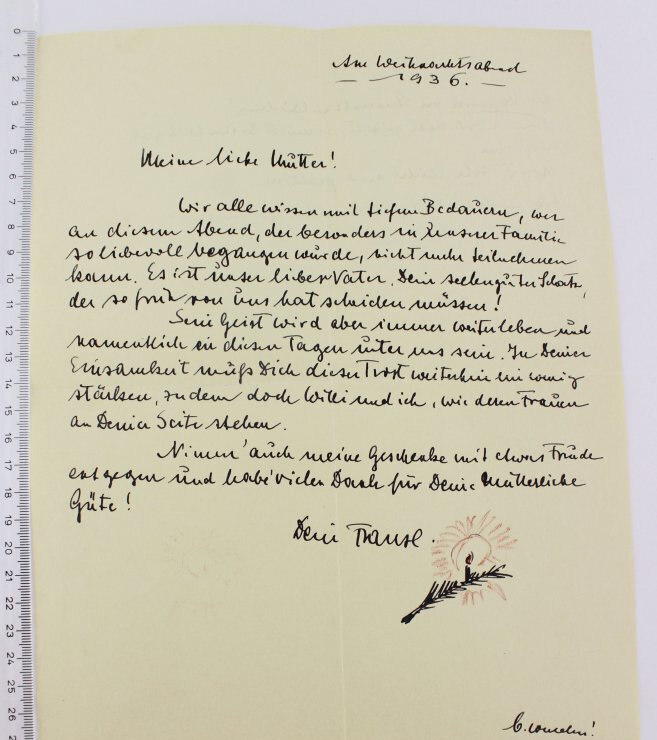 Am Weihnachtsabend
1936.
Meine liebe Mutter!
Wir alle wissen mit tiefem Bedauern, wer
an diesem Abend, der besonders in unserer Familie
so liebevoll begangen wurde, nicht mehr teilnehmen
kann. Es ist unser lieber Vater, Dein seelenguter Schatz,
der so früh von uns hat scheiden müssen!
Sein Geist wird aber immer weiterleben und
namentlich in diesen Tagen unter uns sein. In Deiner
Einsamkeit muß Dich dieser Trost weiterhin ein wenig
stärken, zudem doch Willi und ich, wie deren Frauen
an Deiner Seite stehen.
Nimm' auch meine Geschenke mit etwas Freude
entgegen und habe vielen Dank für Deine mütterliche
Güte!
Dein Franzl.
0
1
2
3
4
5
6
7
8
9
10
11
12
13
14
15
16
17
18
19
20
21
22
23
24
25
26